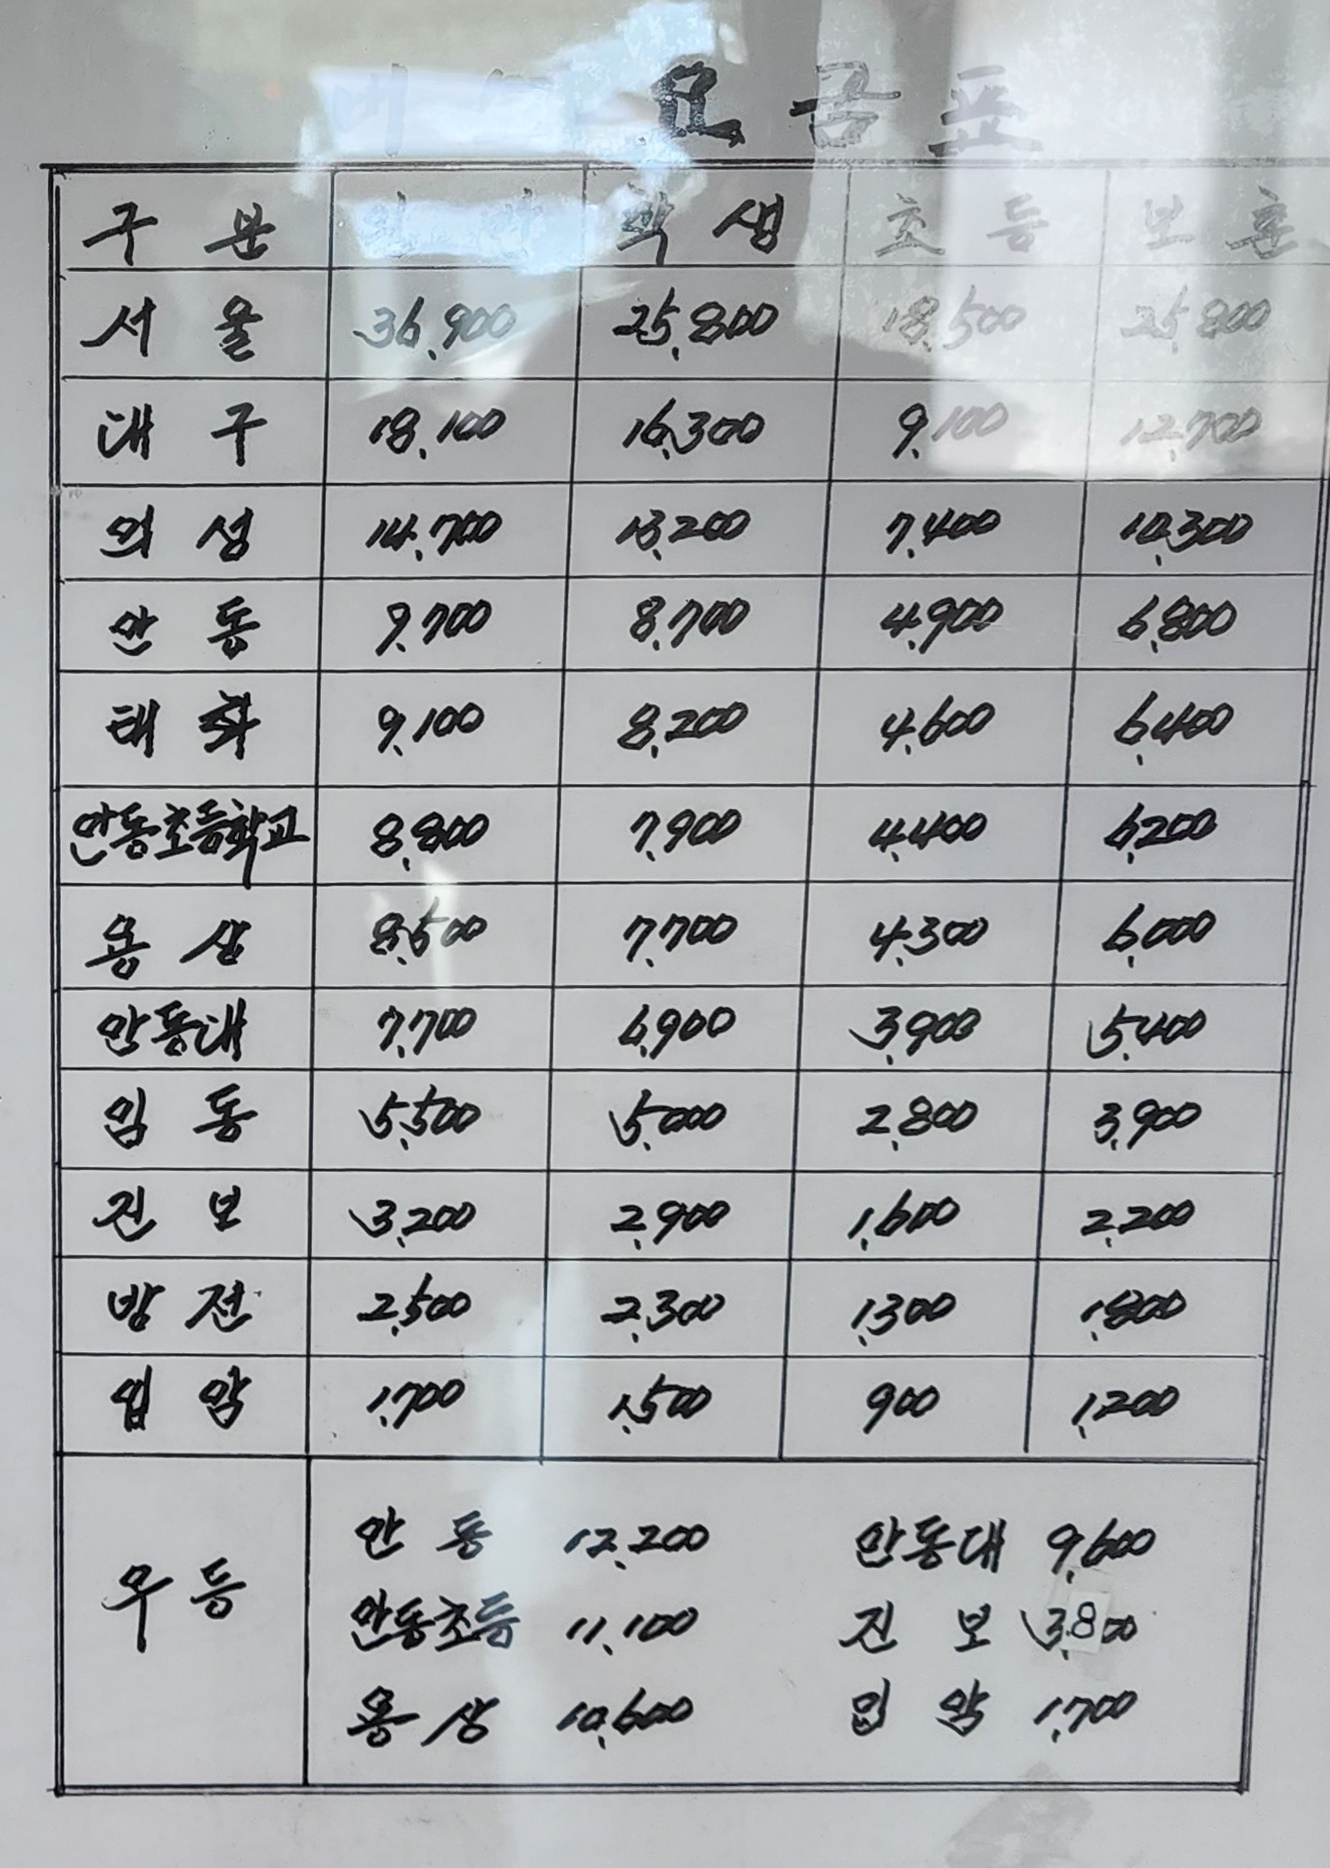 버스 요금표
구분 일반 학생 초등 보훈
서울 36,900 25,800 18,500 25,800
대구 18,100 16,300 9,100 12,700
의성 14,700 13,200 7,400 10,300
안동 9,700 8,700 4,900 6,800
태화 9,100 8,200 4,600 6,400
안동초등학교 8,800 7,900 4,400 6,200
용상 8,500 7,700 4,300 6,000
안동대 7,700 6,900 3,900 5,400
임동 5,500 5,000 2,800 3,900
진보 3,200 2,900 1,600 2,200
방전 2,500 2,300 1,300 1,800
입암 1,700 1,500 900 1,200
무등
안동 12,200 안동대 9,600
안동초등 11,100 진보 3,800
용상 10,600 입암 1,700